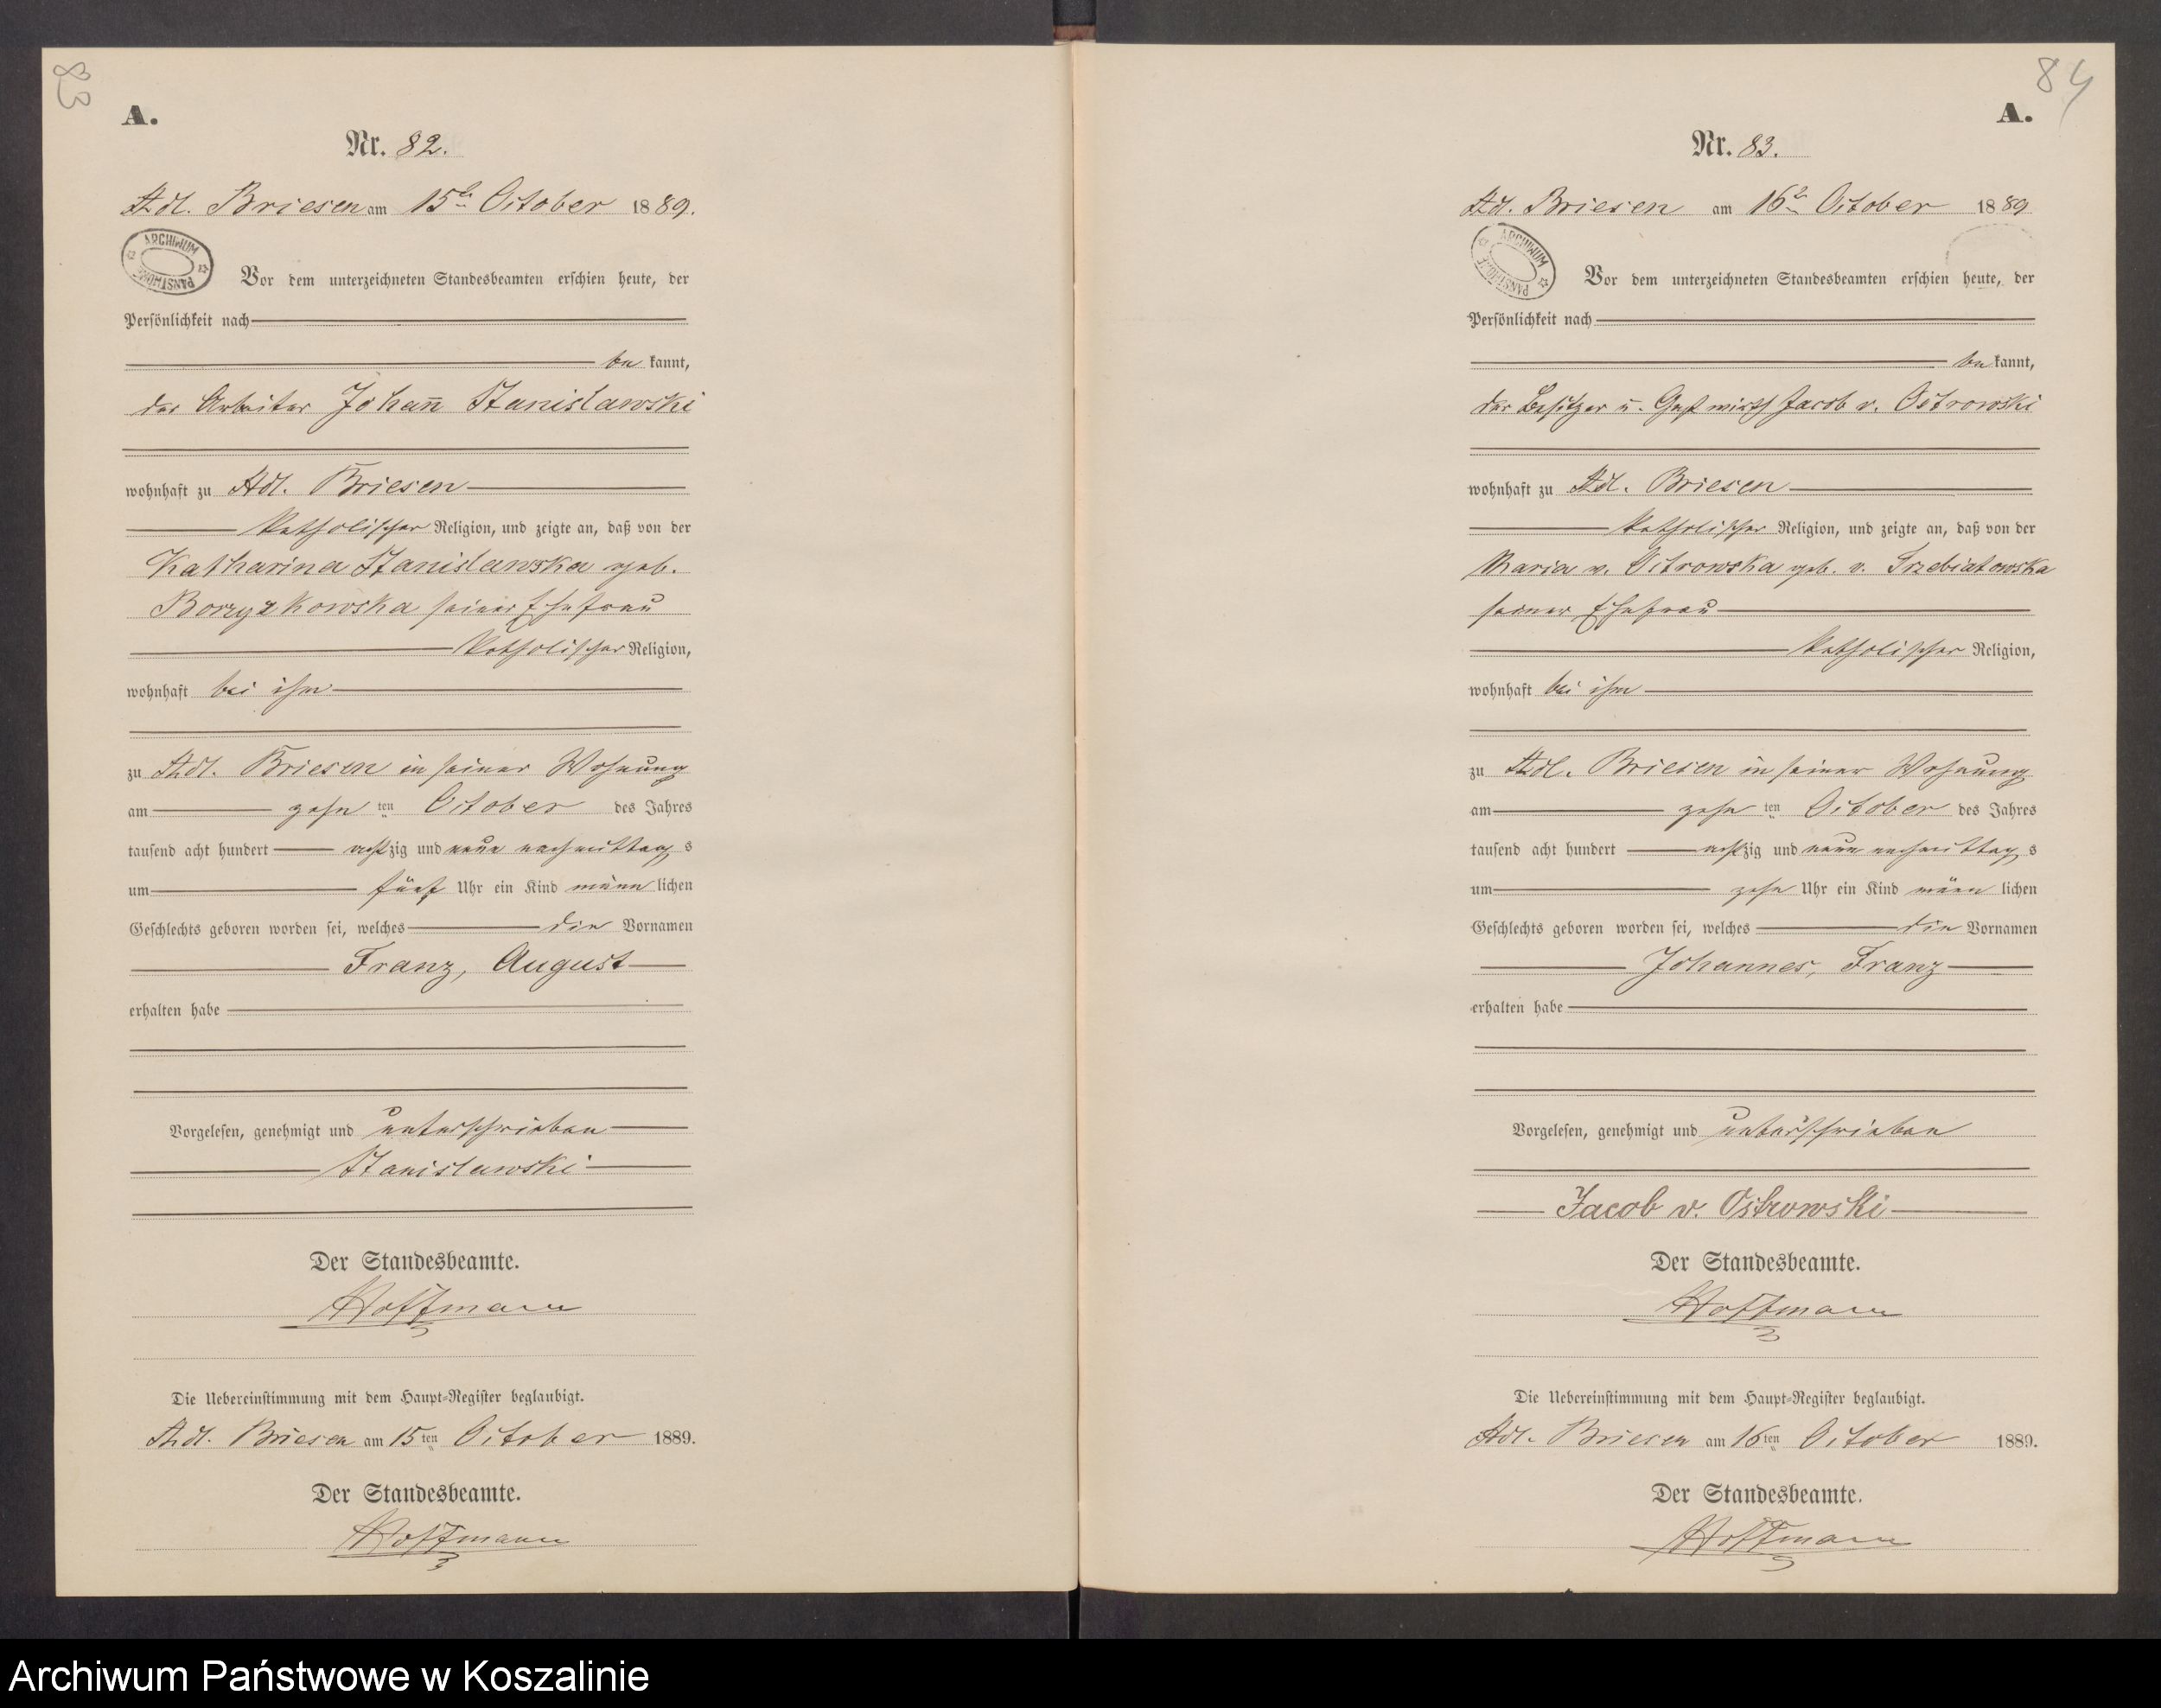 83
A.
Nr. 82.
Adl. Briesen am 15ten October 1889.
ARCHIWUM PAŃSTWOWE
Vor dem unterzeichneten Standesbeamten erschien heute, der
Persönlichkeit nach
be kannt,
der Arbeiter Johann Stanislawski
wohnhaft zu Adl. Briesen
katholischer Religion, und zeigte an, daß von der
Katharina Stanislawska geb.
Borzyzkowska seiner Ehefrau
katholischer Religion,
wohnhaft bei ihm
zu Adl. Briesen in seiner Wohnung
am zehn ten October des Jahres
tausend acht hundert acht zig und neun nachmittag s
um fünf Uhr ein Kind männ lichen
Geschlechts geboren worden sei, welches die Vornamen
Franz, August
erhalten habe
Vorgelesen, genehmigt und unterschrieben
Stanislawski
Der Standesbeamte.
Hoffmann
Die Uebereinstimmung mit dem Haupt-Register beglaubigt.
Adl. Briesen am 15ten October 1889.
Der Standesbeamte.
Hoffmann
84
A.
Nr. 83.
Adl. Briesen am 16ten October 1889
ARCHIWUM PAŃSTWOWE
Vor dem unterzeichneten Standesbeamten erschien heute, der
Persönlichkeit nach
be kannt,
der Besitzer u. Gastwirth Jacob v. Ostrowski
wohnhaft zu Adl. Briesen
katholischer Religion, und zeigte an, daß von der
Maria v. Ostrowska geb. v. Trzebiatowska
seiner Ehefrau
katholischer Religion,
wohnhaft bei ihm
zu Adl. Briesen in seiner Wohnung
am zehn ten October des Jahres
tausend acht hundert acht zig und neun nachmittag s
um zehn Uhr ein Kind männ lichen
Geschlechts geboren worden sei, welches die Vornamen
Johannes, Franz
erhalten habe
Vorgelesen, genehmigt und unterschrieben
Jacob v. Ostrowski
Der Standesbeamte.
Hoffmann
Die Uebereinstimmung mit dem Haupt-Register beglaubigt.
Adl. Briesen am 16ten October 1889.
Der Standesbeamte.
Hoffmann
Archiwum Państwowe w Koszalinie